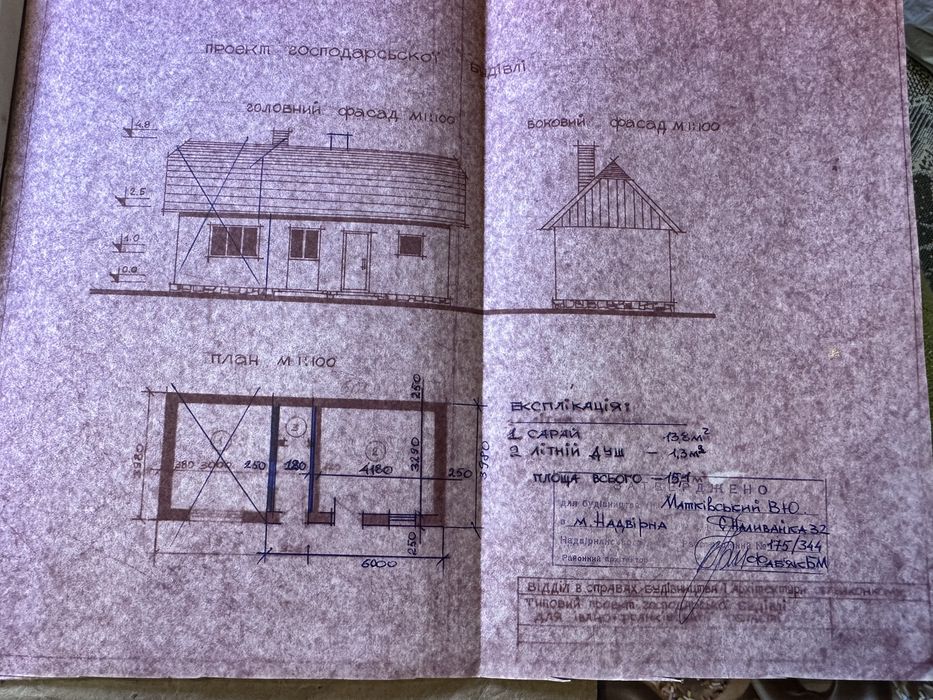 ПРОЕКТ ГОСПОДАРСЬКОЇ БУДІВЛІ
ГОЛОВНИЙ ФАСАД М 1:100
БОКОВИЙ ФАСАД М 1:100
4.8
2.5
1.0
0.0
ПЛАН М 1:100
250
1
3
2
3980
380
3000
250
120
4180
3290
250
3980
250
6000
ЕКСПЛІКАЦІЯ:
1 САРАЙ 13,8 м²
2 ЛІТНІЙ ДУШ – 1,3 м²
ПЛОЩА ВСЬОГО – 15,1 м
ДЖЕНО
для будівництва Матківський В.Ю.
в м. НАДВІРНА Є Наливайка 32
Надвірнянсь
№ 175/344
Районний архітектор БМ
ВІДДІЛ В СПРАВАХ БУДІВНИЦТВА І АРХІТЕКТУРИ
ТИПОВИЙ ПРОЕКТ ГОСПОДАРСЬКОЇ БУДІВЛІ
ДЛЯ ІВАНО-ФРАНКІВ